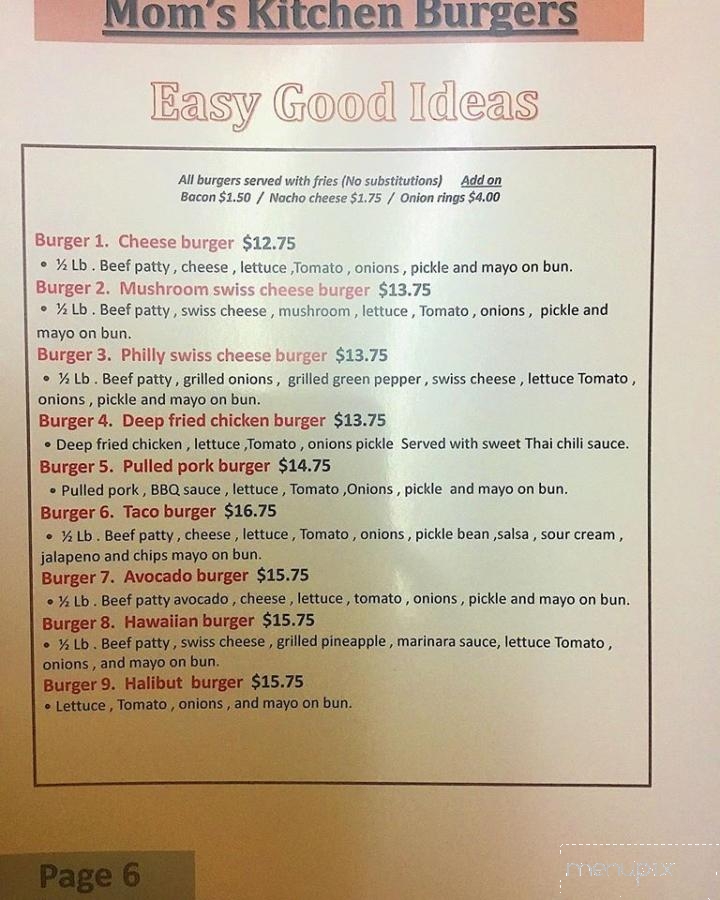 Mom's Kitchen Burgers
Easy Good Ideas
All burgers served with fries (No substitutions) Add on
Bacon $1.50 / Nacho cheese $1.75 / Onion rings $4.00
Burger 1. Cheese burger $12.75
• ½ Lb . Beef patty , cheese , lettuce ,Tomato , onions , pickle and mayo on bun.
Burger 2. Mushroom swiss cheese burger $13.75
• ½ Lb . Beef patty , swiss cheese , mushroom , lettuce , Tomato , onions , pickle and
mayo on bun.
Burger 3. Philly swiss cheese burger $13.75
• ½ Lb . Beef patty , grilled onions , grilled green pepper , swiss cheese , lettuce Tomato ,
onions , pickle and mayo on bun.
Burger 4. Deep fried chicken burger $13.75
• Deep fried chicken , lettuce ,Tomato , onions pickle Served with sweet Thai chili sauce.
Burger 5. Pulled pork burger $14.75
• Pulled pork , BBQ sauce , lettuce , Tomato ,Onions , pickle and mayo on bun.
Burger 6. Taco burger $16.75
• ½ Lb . Beef patty , cheese , lettuce , Tomato , onions , pickle bean ,salsa , sour cream ,
jalapeno and chips mayo on bun.
Burger 7. Avocado burger $15.75
• ½ Lb . Beef patty avocado , cheese , lettuce , tomato , onions , pickle and mayo on bun.
Burger 8. Hawaiian burger $15.75
• ½ Lb . Beef patty , swiss cheese , grilled pineapple , marinara sauce, lettuce Tomato ,
onions , and mayo on bun.
Burger 9. Halibut burger $15.75
• Lettuce , Tomato , onions , and mayo on bun.
Page 6
menupix